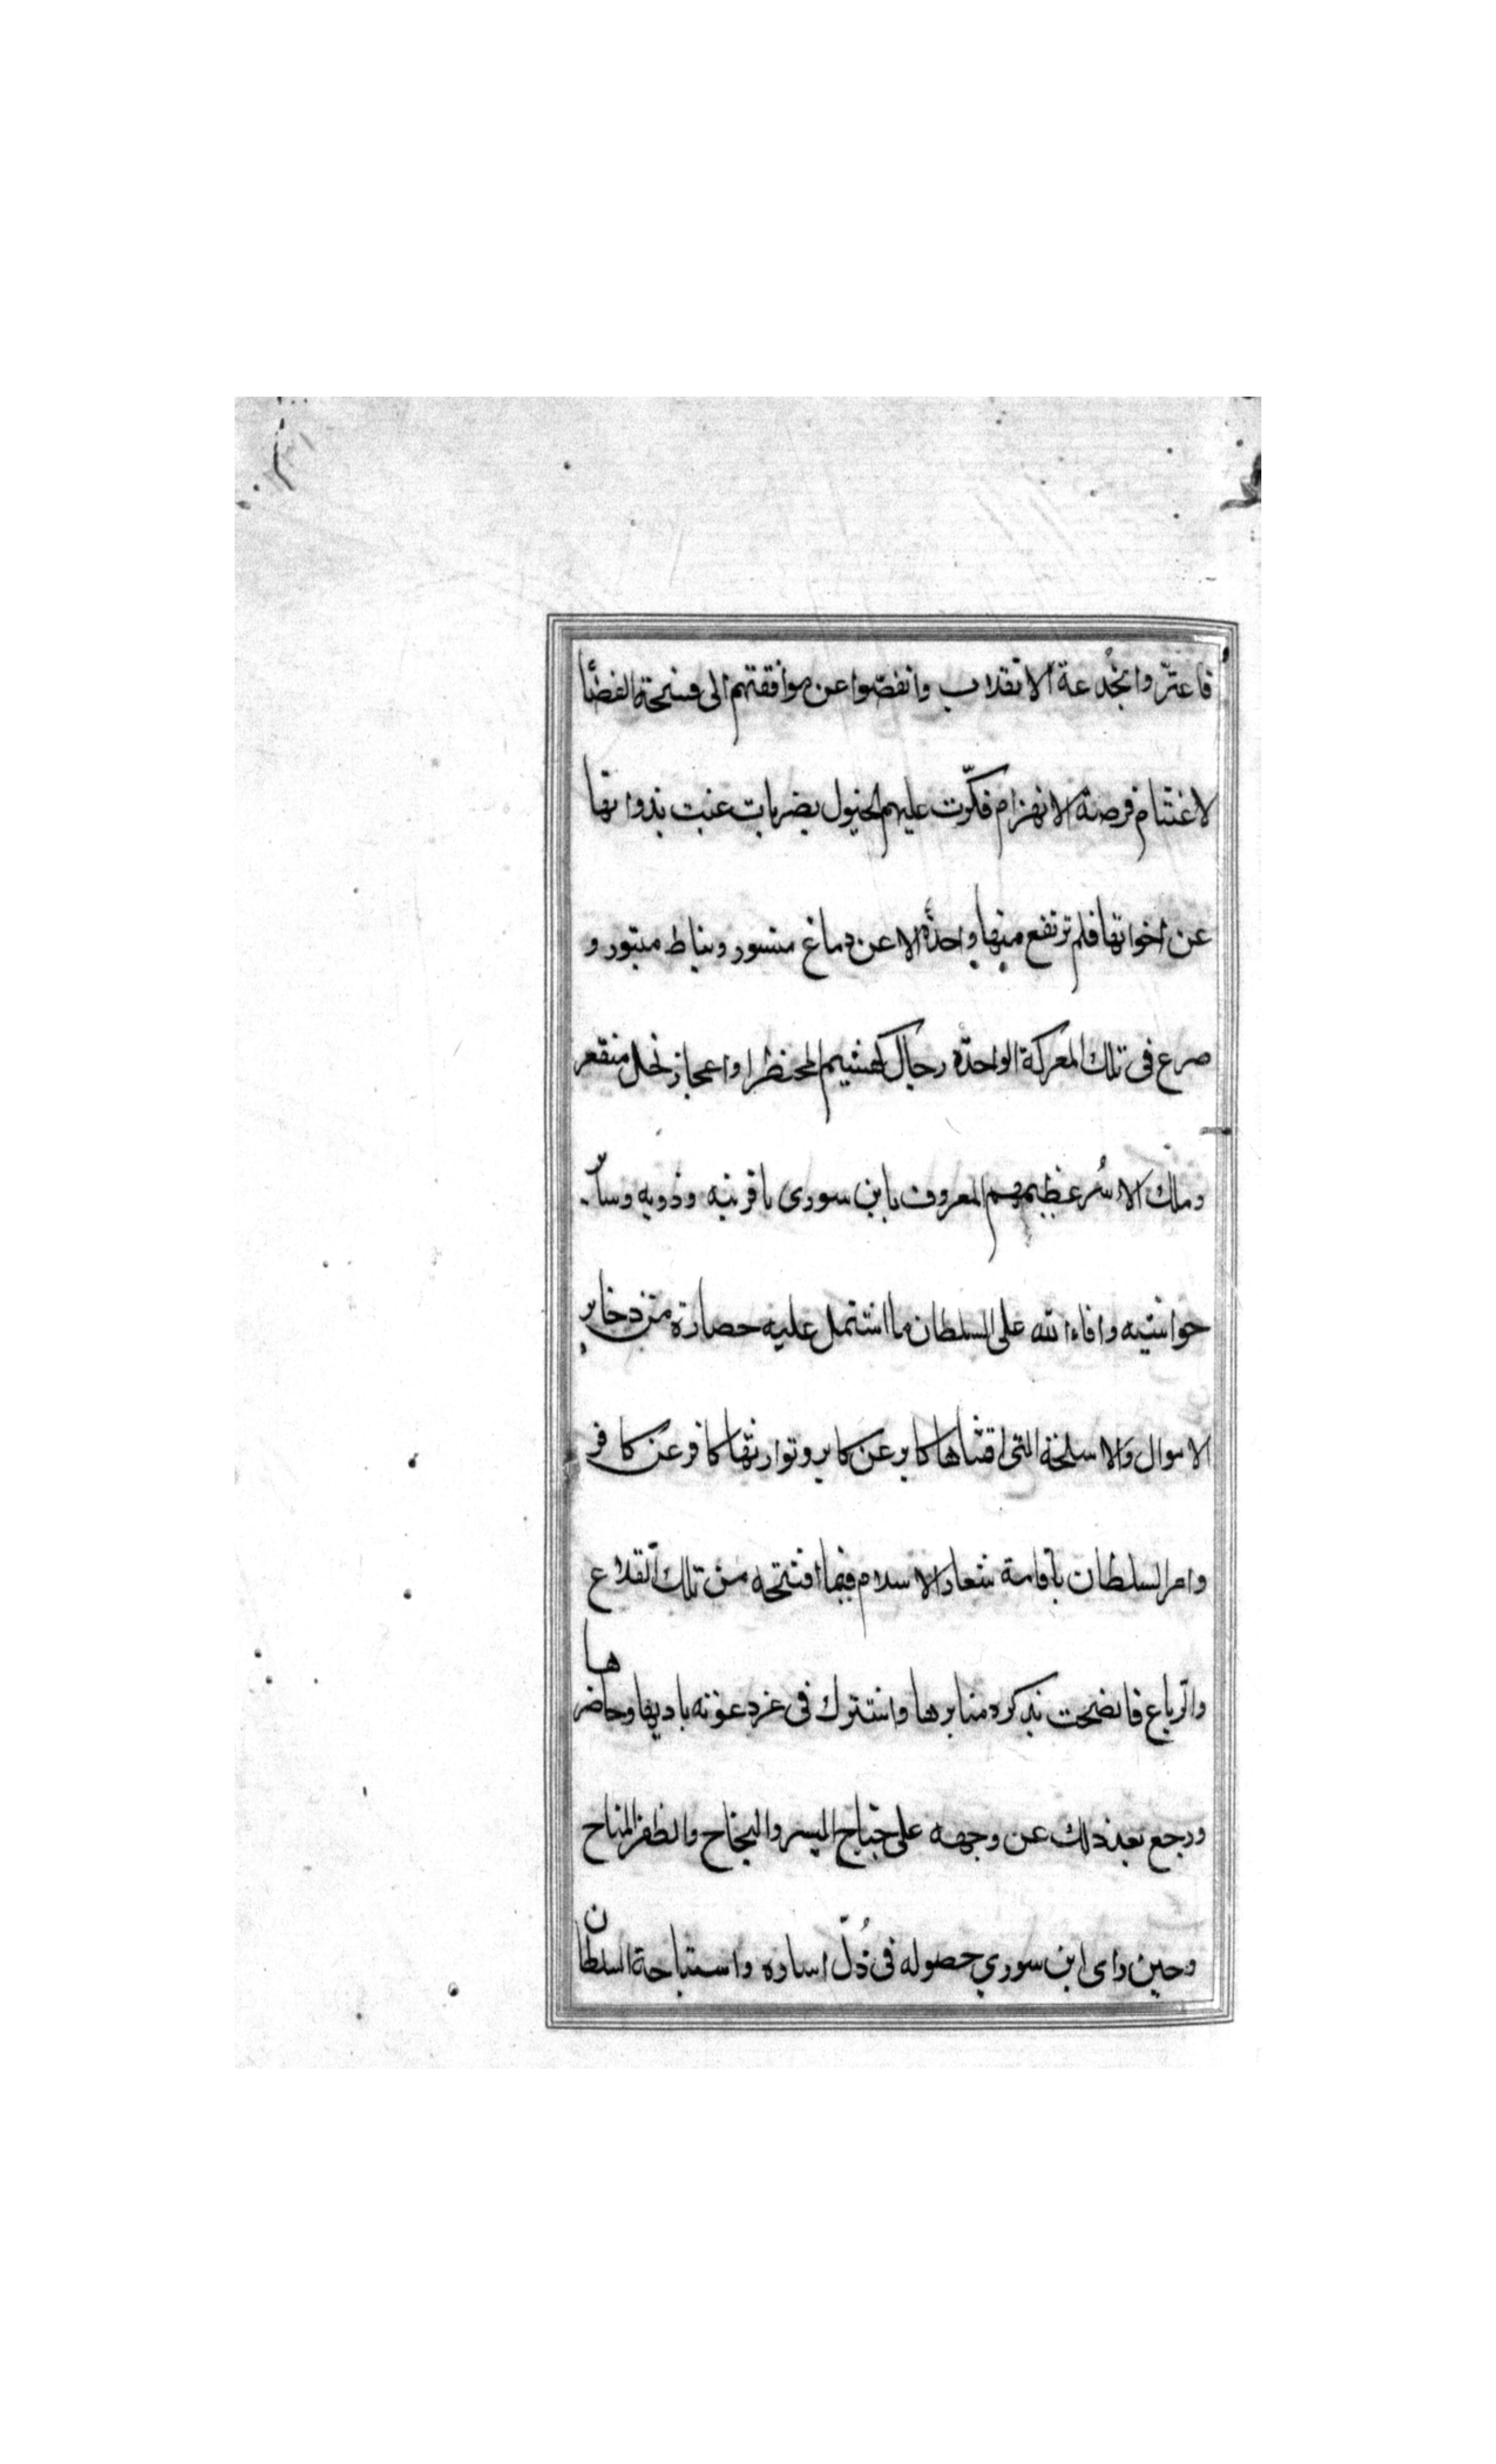 فاعترّوا بخُدعة الانقلاب وانفضّوا عن موافقتهم الى فسحة الفضٓا
لاغتنام فرصة الانهزام فكرّت عليهم الخيول بضربات غنت بذواتها
عن اخواتها فلم ترتفع منها واحدة الا عن دماغ منسور ونياط مبتور و
صرع فى تلك المعركة الواحدة رجال كهشيم المحتظر او اعجاز نخل منقعر
وملك الاسُر عظيمهم المعروف بابن سورى باقربيه وذويه وسآئر
حواشيه وافاء الله على السلطان ما اشتمل عليه حصاره من ذخاير
الاموال والاسلحة التى اقتناها كابر عن كابر وتوارثها كافر عن كافر
وامر السلطان باقامة شعار الاسلام فيما افتتحه من تلك القلاع
والرباع فافضحت بذكره منابرها واشترك فى عز دعوته باديها وحاضرها
ورجع بعد ذلك عن وجهه على جناح اليسر والنجاح والظفر المتاح
وحين راى ابن سوري حصوله فى ذُلّ اساره واستباحة السلطان